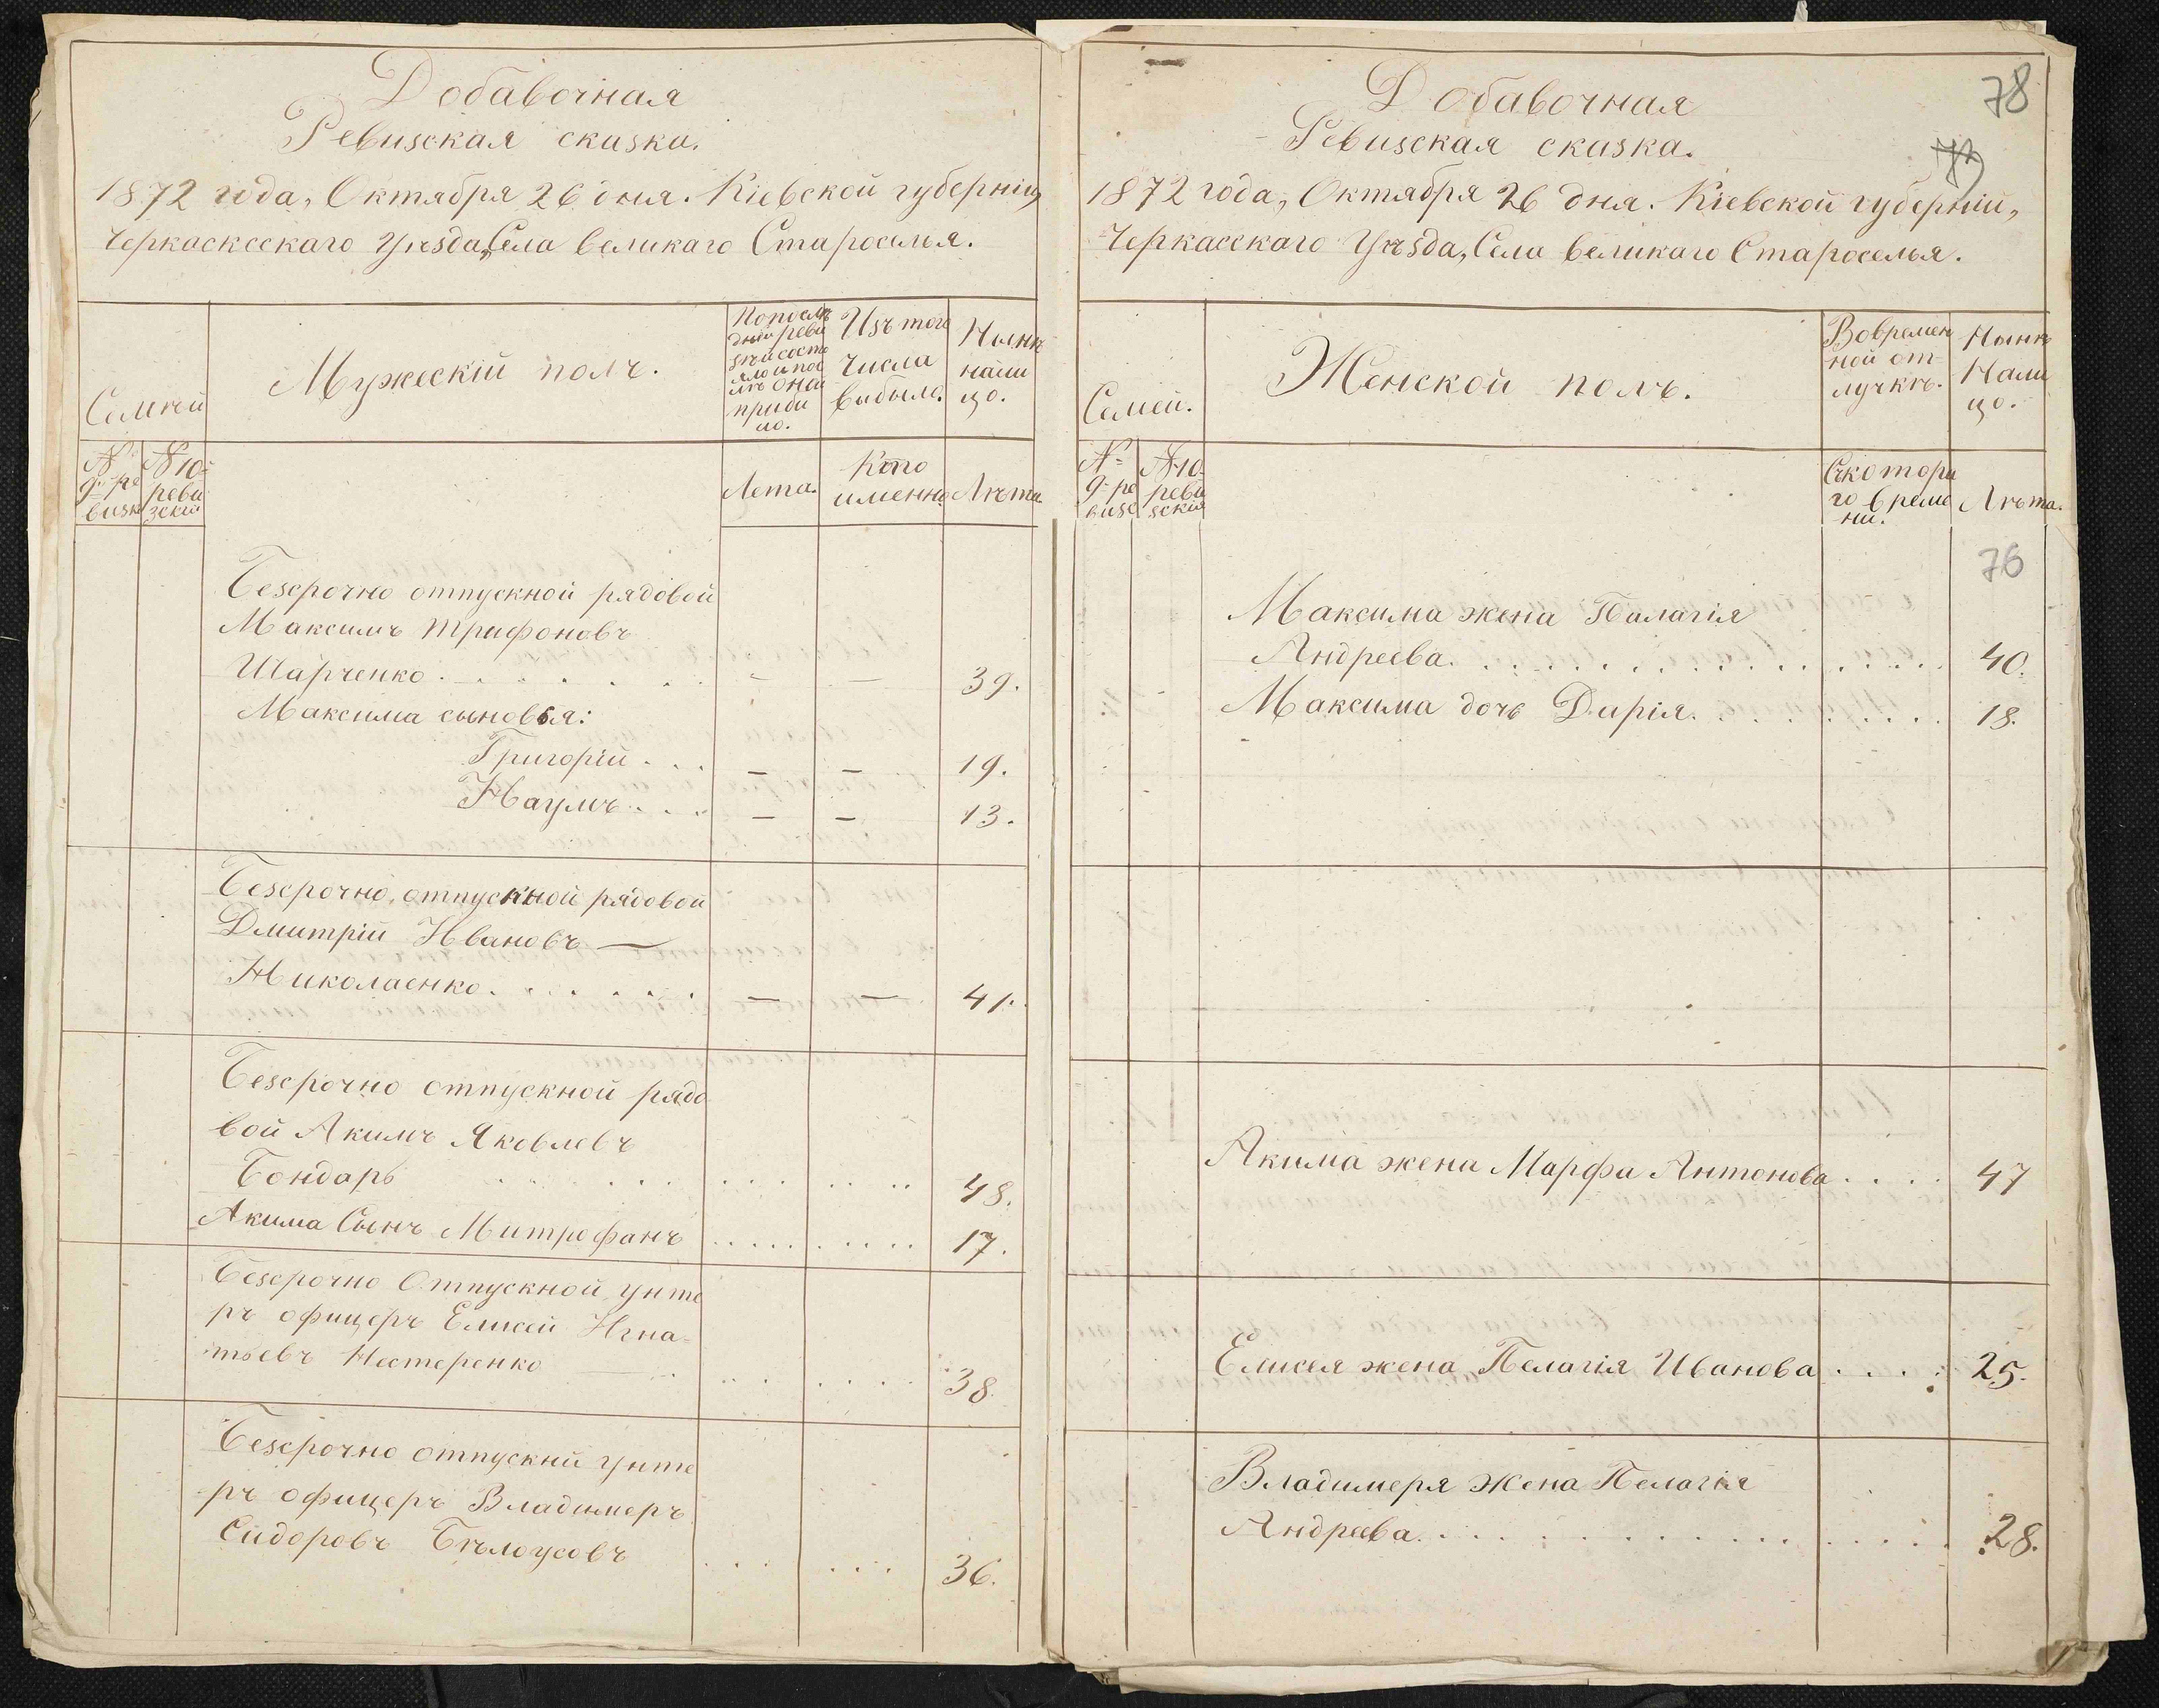 Добавочная
Ревизская сказка.
1872 года, Октября 26 дня. Кіевской губерніи,
Черкасксскаго Уѣзда, Села великаго Староселья.
Семѣй
Мужескій полъ.
Изъ того
числа
выбыло.
Нынѣ
нали
цо.
№
9й ре
визк
№ 10й
реви
зскій
Лета.
Кто
именно
Лѣта
Безсрочно отпускной рядовой
Максимъ Трифоновъ
Шарченко . . . . . . . — — 39.
Максима сыновья:
Григорій . . . — — 19.
Наумъ . . . — — 13.
Безсрочно, отпускной рядовой
Дмитрій Ивановъ —
Николаенко . . . . . . . — — 41.
Безсрочно отпускной рядо
вой Акимъ Яковлевъ
Бондарь . . . . . . . . . . 48.
Акима Сынъ Митрофанъ . . . . . . . . . 17.
Безсрочно Отпускной унте
ръ офицеръ Елисей Игна-
тьевъ Нестеренко — . . . . . . . 38.
Безсрочно отпускни унте
ръ офицеръ Владимеръ
Сидоровъ Бѣлоусовъ . . . . . . 36.
78
Добавочная
Ревизская сказка.
1872 года, Октября 26 дня. Кіевской губерніи,
Черкасскаго Уѣзда, Села великаго Староселья.
Семей.
Женской полъ.
Вовремен
ной от-
лучкѣ.
Нынѣ
Нали
цо.
№
9й ре
визс
№ 10
реви
зскій
Съкотора
го време
ни.
Лѣта.
76
Максима жена Палагія
Андреева. . . . . . . . . . . . . . . . 40.
Максима дочь Дарія. . . . . . . . . . 18.
Акима жена Марфа Антонова . . . . 47
Елисея жена Пелагія Иванова . . . . 25.
Владимеря Жена Пелагія
Андреева. . . . . . . . . . . . . . . 28.